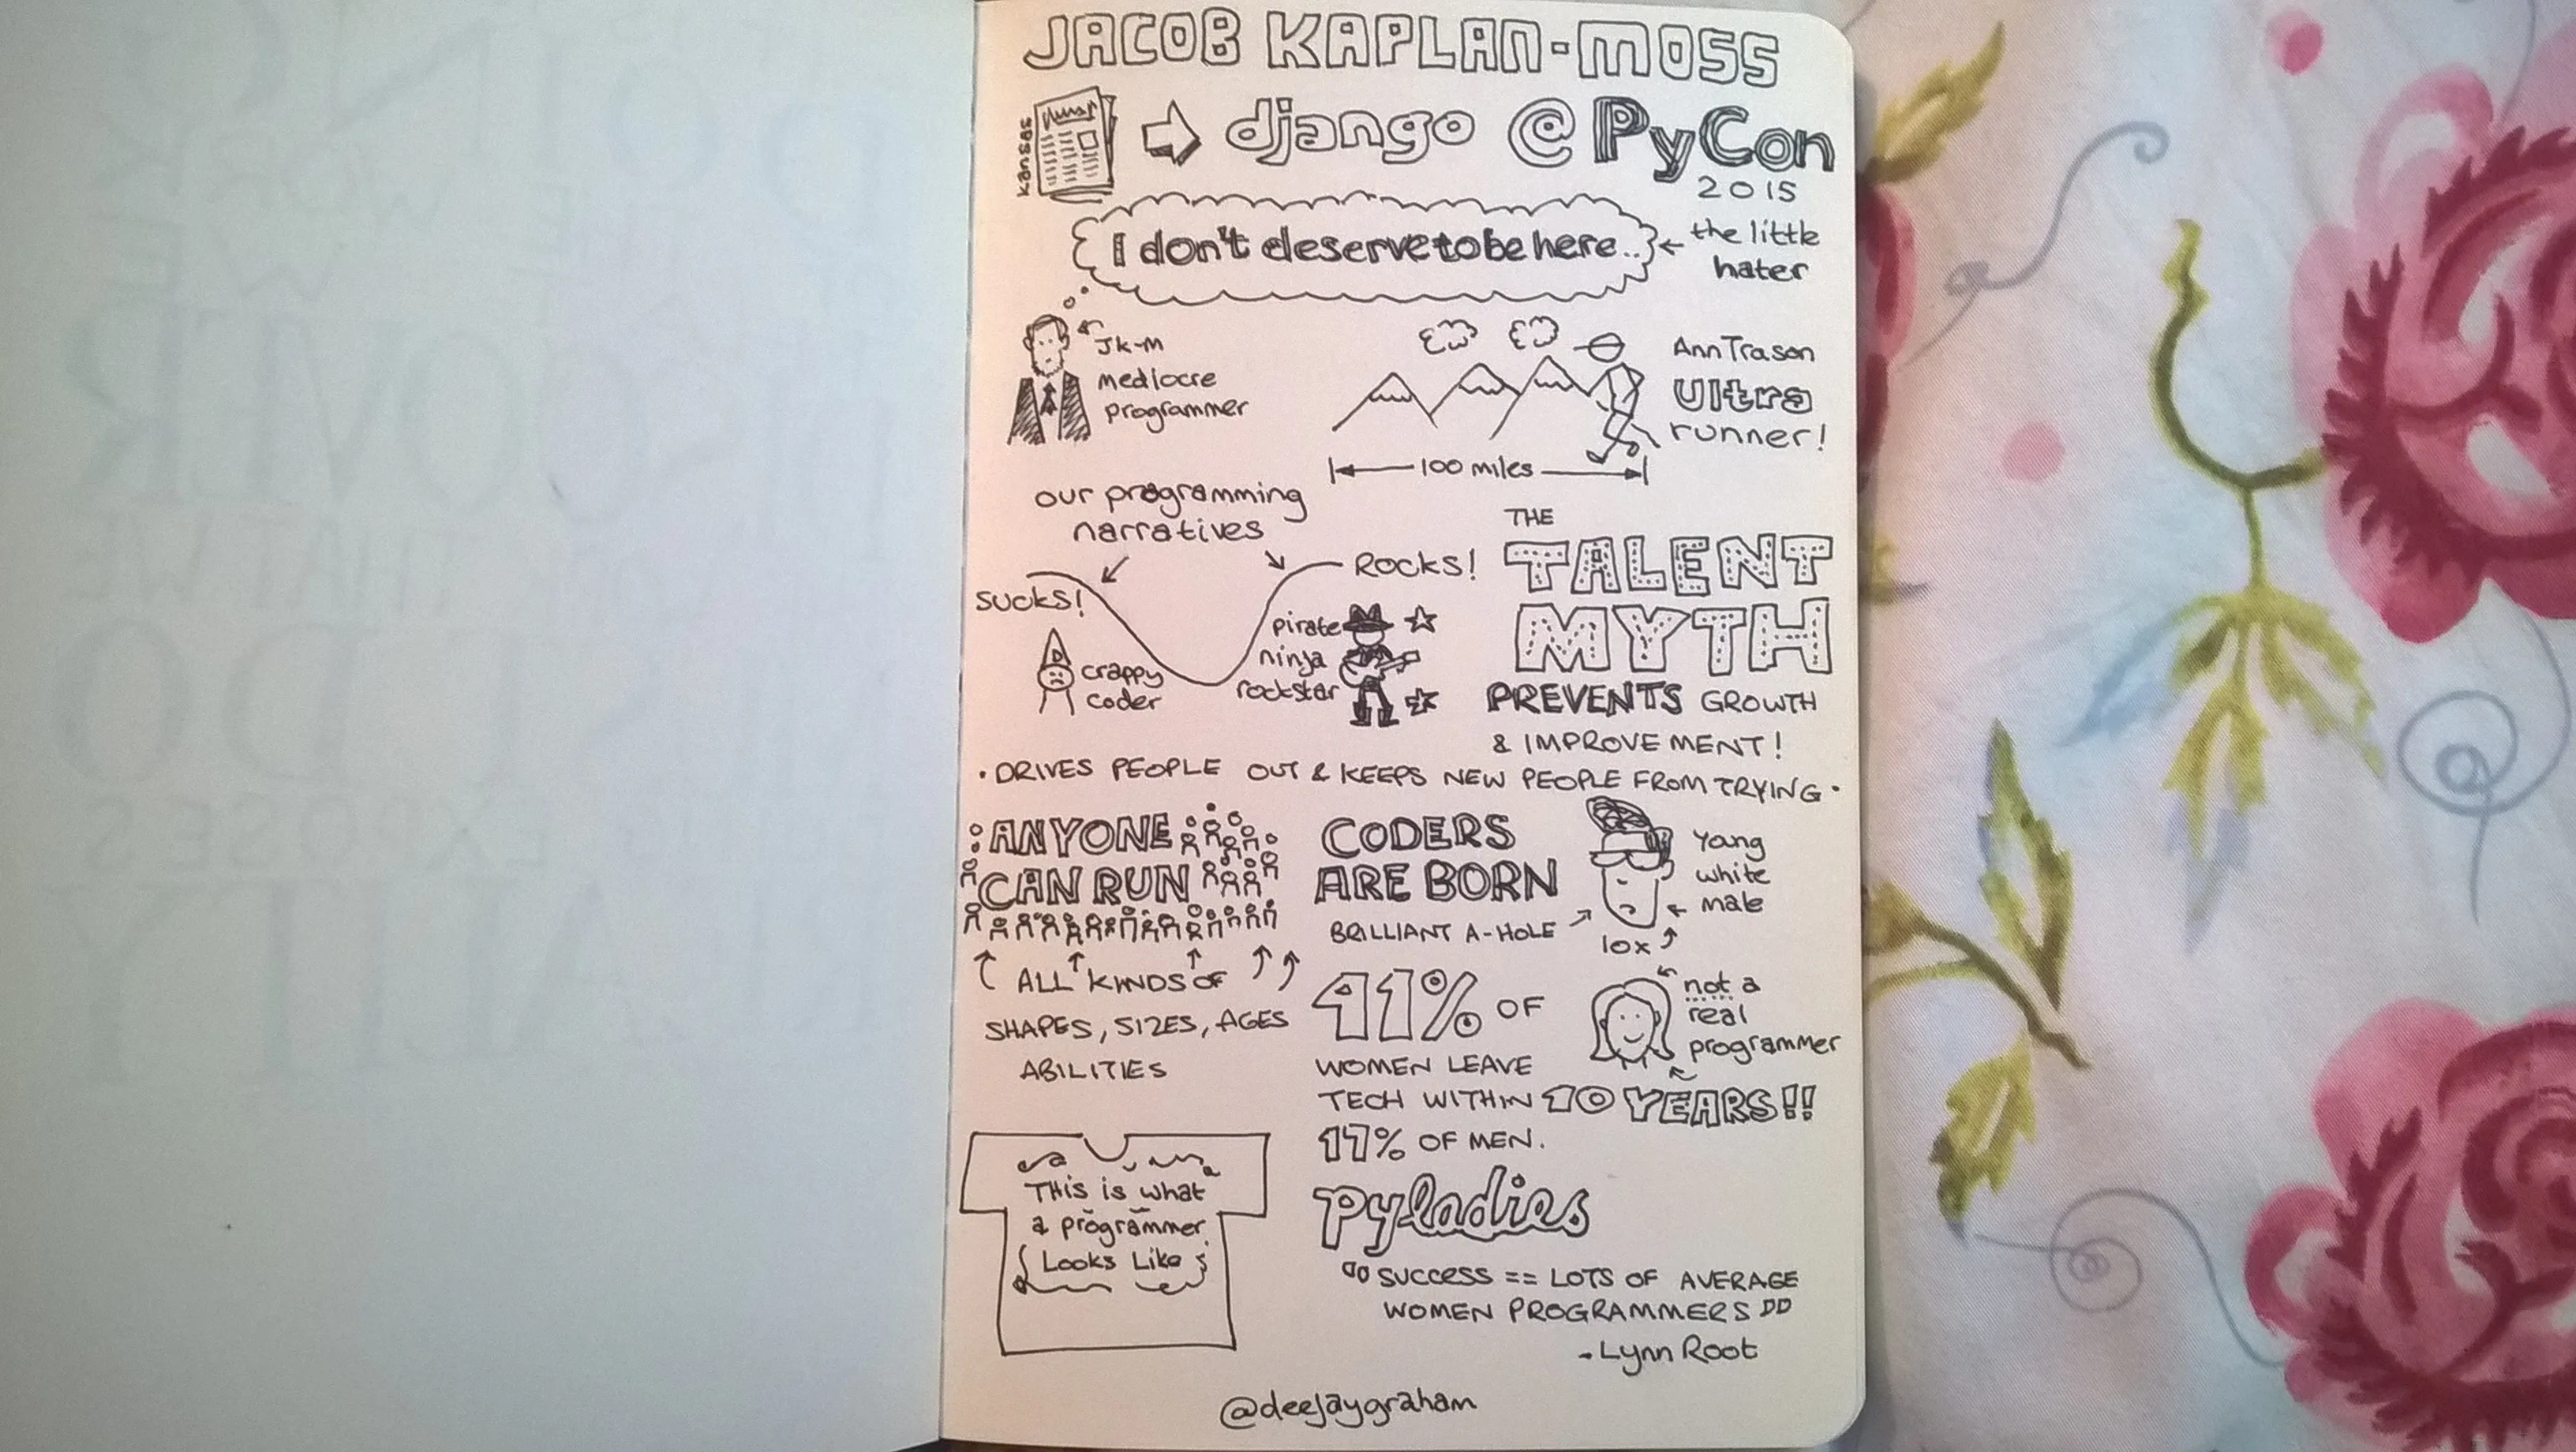 JACOB KAPLAN-MOSS
kansas
django @ PyCon
2015
I don't deserve to be here..
the little
hater
JK-M
mediocre
programmer
Ann Trason
Ultra
runner!
100 miles
our programming
narratives
SUCKS!
ROCKS!
crappy
coder
pirate
ninja
rockstar
THE
TALENT
MYTH
PREVENTS GROWTH
& IMPROVEMENT!
• DRIVES PEOPLE OUT & KEEPS NEW PEOPLE FROM TRYING •
ANYONE
CAN RUN
ALL KINDS OF
SHAPES, SIZES, AGES
ABILITIES
CODERS
ARE BORN
BRILLIANT A-HOLE
Yang
white
male
10x
41% OF
WOMEN LEAVE
TECH WITHIN 10 YEARS!!
17% OF MEN.
not a
real
programmer
This is what
a programmer
Looks Like
pyladies
"SUCCESS == LOTS OF AVERAGE
WOMEN PROGRAMMERS"
- Lynn Root
@deejaygraham